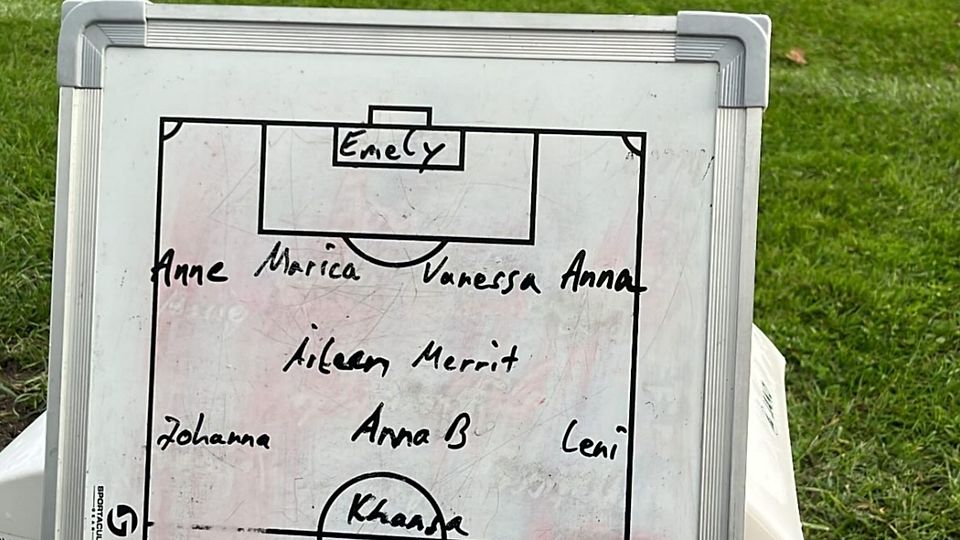 Emely
Anne Marica Vanessa Anna
Aileen Merrit
Johanna Anna B Leni
Khansa
SPORTACUL